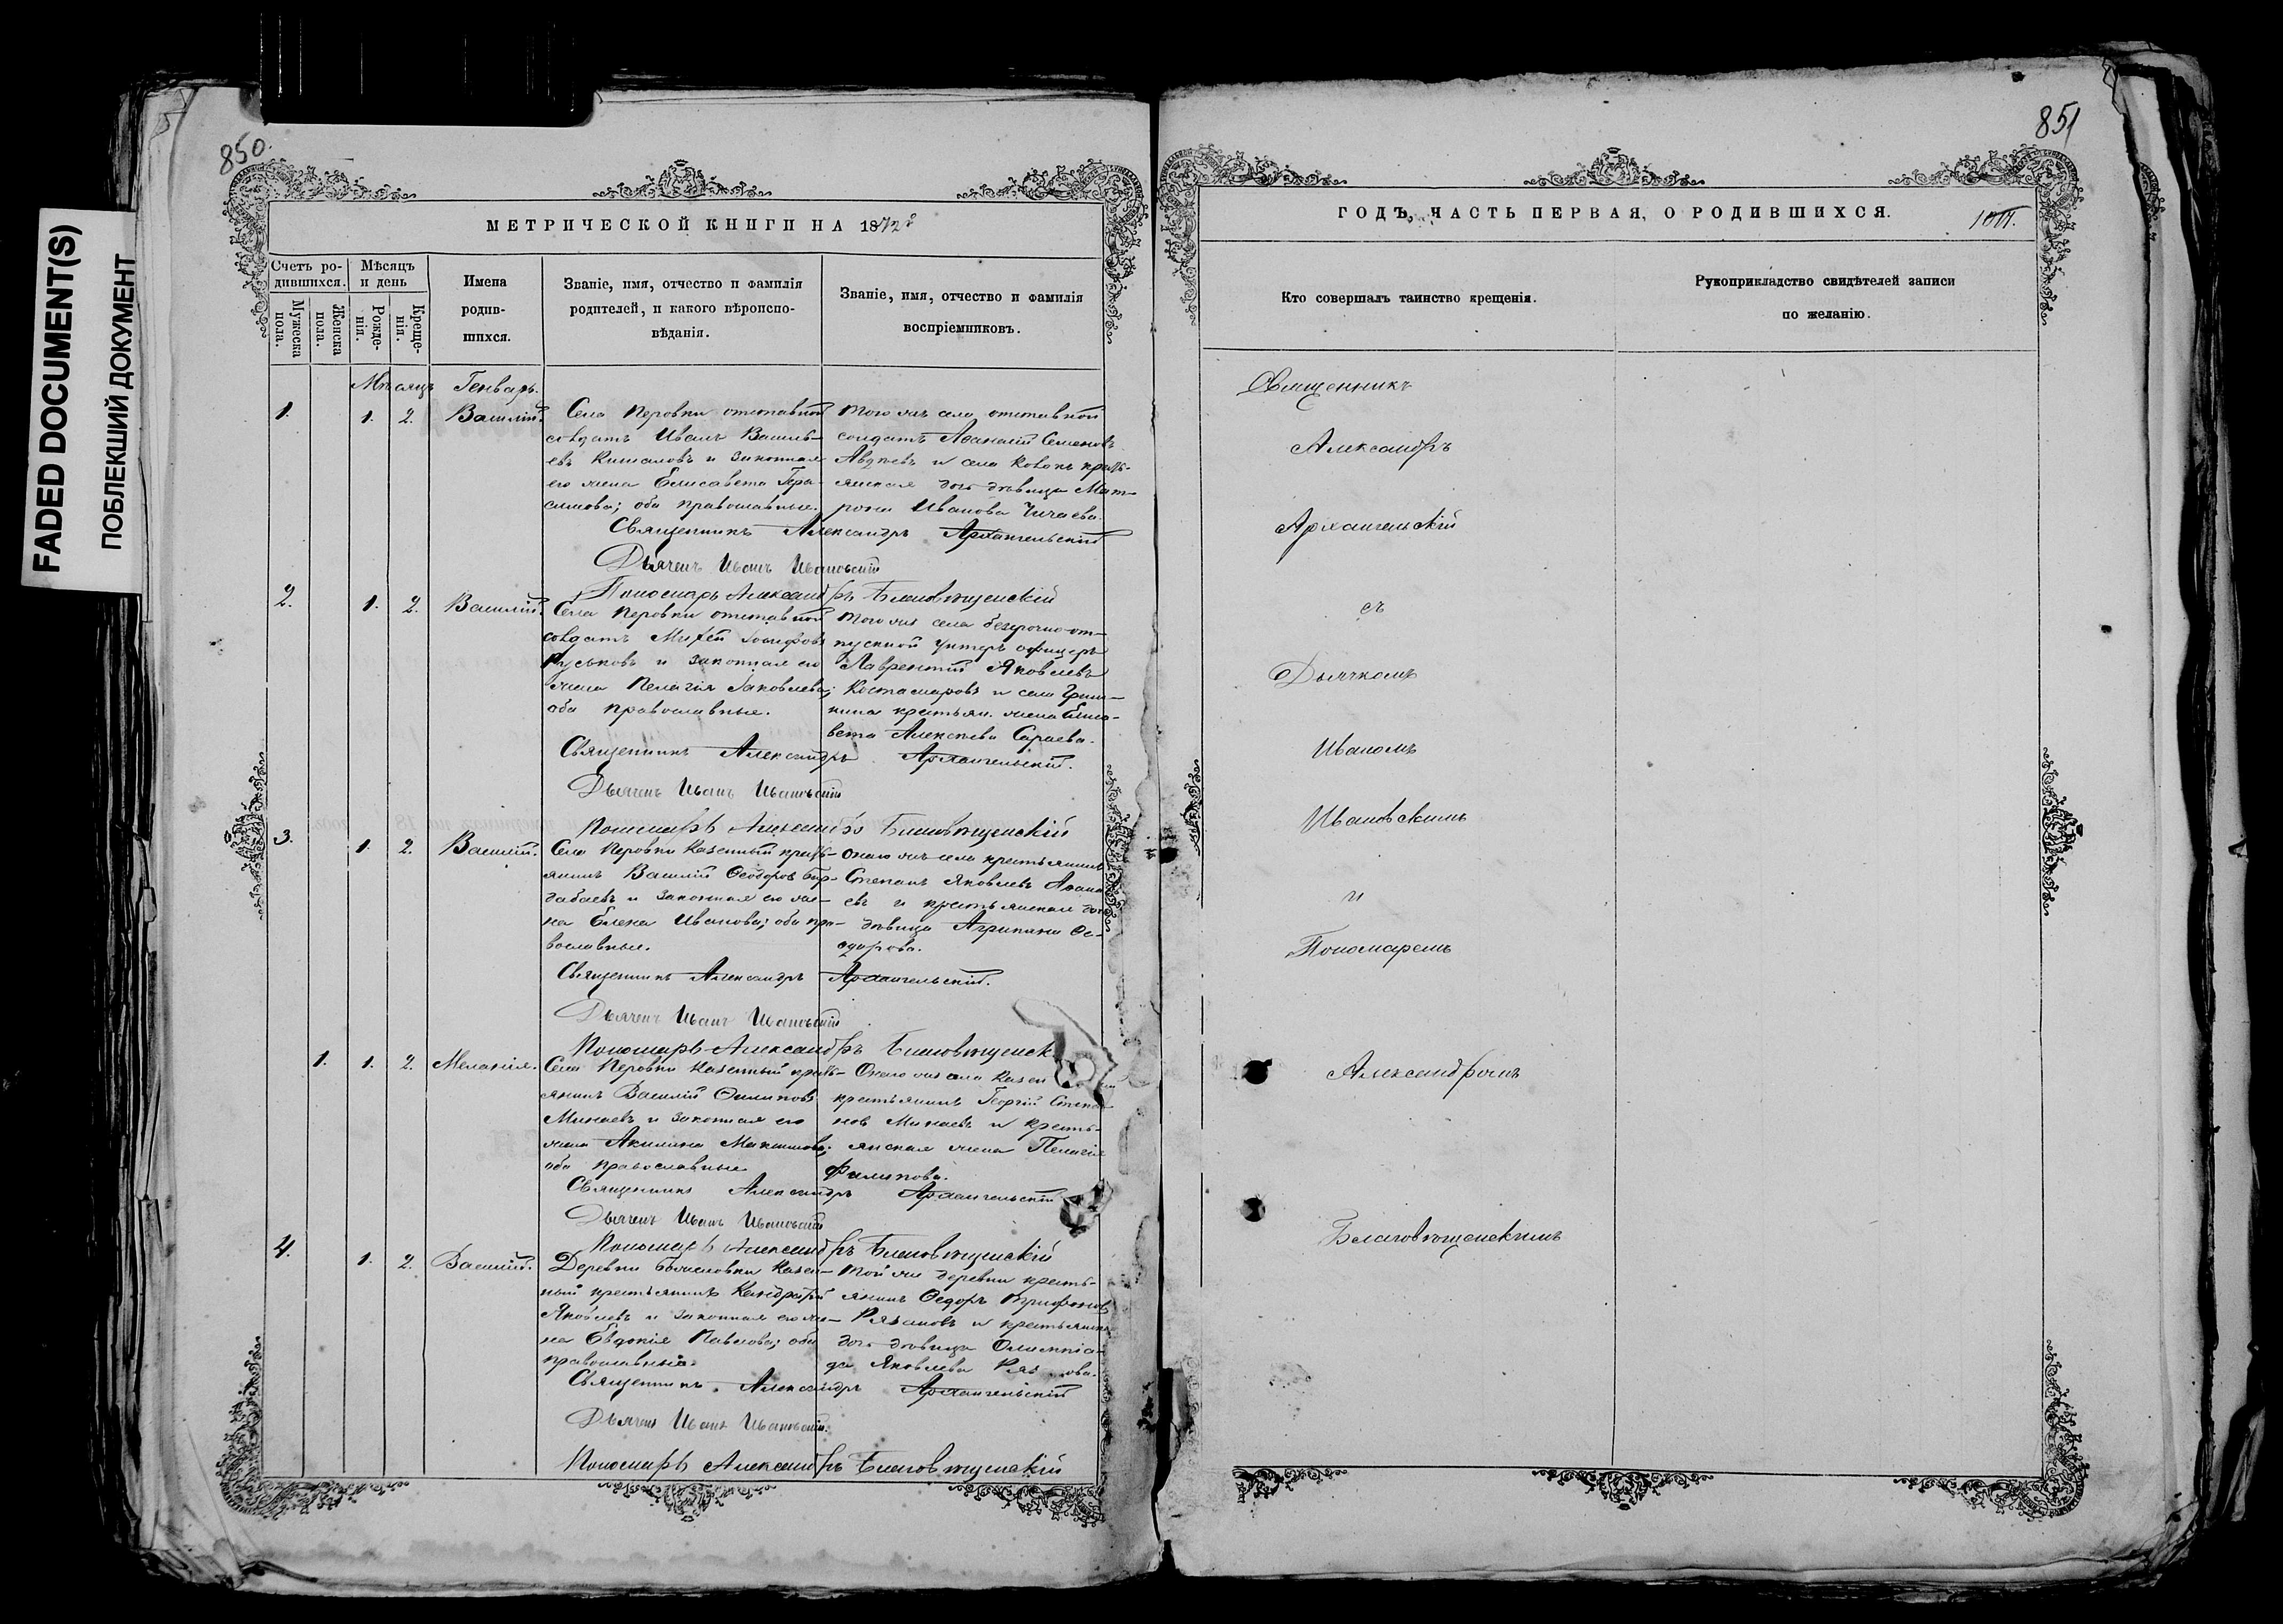 FADED DOCUMENT(S)
ПОБЛЕКШИЙ ДОКУМЕНТ
850.
МЕТРИЧЕСКОЙ КНИГИ НА 1872й
Счетъ родившихся.
Мужеска пола.
Женска пола.
Мѣсяцъ и день
Рожденія.
Крещенія.
Имена родившихся.
Званіе, имя, отчество и фамилія
родителей, и какого вѣроисповѣданія.
Званіе, имя, отчество и фамилія
воспріемниковъ.
Мѣсяцъ Генварь.
1. 1. 2. Василій.
Села Перовки отставной
солдатъ Иванъ Василь-
евъ и законная
его жена Елисавета Гера-
симова; оба православные.
того же села отставной
солдатъ Афанасій Семеновъ
Авдѣевъ и села кресть-
янская дочь дѣвица Мат-
рона Иванова
Священникъ Александръ Архангельскій
Дьячекъ Иванъ Ивановскій
Пономарь Александръ Благовѣщенскій
2. 1. 2. Василій.
Села Перовки отставной
солдатъ Іосифовъ
и законная его
жена Пелагія Яковлева;
оба православные.
того же села безсрочно-от-
пускной унтеръ офицеръ
Лаврентій Яковлевъ
и села
крестьян. жена Елиса-
вета Алексѣева Сараева.
Священникъ Александръ Архангельскій.
Дьячекъ Иванъ Ивановскій
Пономарь Александръ Благовѣщенскій
3. 1. 2. Василій.
Села Перовки казенный кресть-
янинъ Василій Ѳеодоровъ
и законная его же-
на Елена Иванова; оба пра-
вославные.
Онаго же села крестьянинъ
Степанъ Яковлевъ
и крестьянская дочь
дѣвица Агрипина Ѳе-
одорова.
Священникъ Александръ Архангельскій.
Дьячекъ Иванъ Ивановскій
Пономарь Александръ Благовѣщенск
1. 1. 2. Меланія.
Села Перовки казенный кресть-
янинъ Василій Филиповъ
Минаевъ и законная его
жена Акилина Максимова;
оба православные
Онаго же села казен
крестьянинъ Георгій Степа-
новъ Минаевъ и кресть-
янская жена Пелагія
Филипова.
Священникъ Александръ Архангельскій
Дьячекъ Иванъ Ивановскій
Пономарь Александръ Благовѣщенскій
4. 1. 2. Василій.
Деревни казен-
ный крестьянинъ Кондратій
Яковлевъ и законная его же-
на Евдокія Павлова; оба
православные.
той же деревни кресть-
янинъ Ѳедоръ Трифоновъ
Рязановъ и крестьянская
дочь дѣвица Олимпіа-
да Яковлева
Священникъ Александръ Архангельскій
Дьячекъ Иванъ Ивановскій.
Пономарь Александръ Благовѣщенскій
851
ГОДЪ, ЧАСТЬ ПЕРВАЯ, О РОДИВШИХСЯ.
Кто совершалъ таинство крещенія.
Рукоприкладство свидѣтелей записи
по желанію.
Священникъ
Александръ
Архангельскій
съ
Дьячкомъ
Иваномъ
Ивановскимъ
и
Пономаремъ
Александромъ
Благовѣщенскимъ